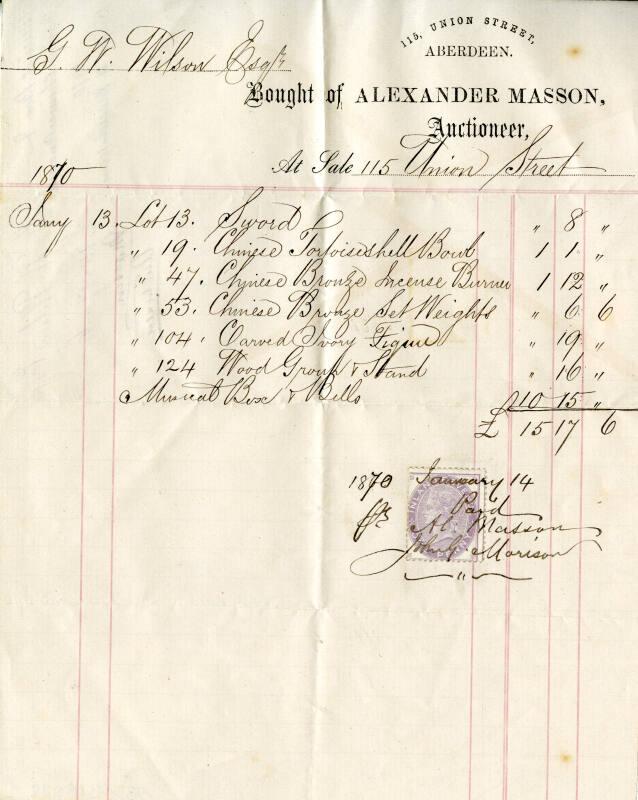 115, UNION STREET,
ABERDEEN.
G. W. Wilson Esqr
Bought of ALEXANDER MASSON,
Auctioneer,
At Sale 115 Union Street
1870
Jany 13. Lot 13. Sword " 8 "
" 19. Chinese Tortoiseshell Bowl 1 1 "
" 47. Chinese Bronze Incense Burner 1 12 "
" 53. Chinese Bronze Set Weights " 6 6
" 104. Carved Ivory Figure " 19 "
" 124 Wood Group & Stand " 16 "
Musical Box & Bells 10 15 "
£ 15 17 6
1870 January 14
Paid
Al. Masson
John G. Morison
"